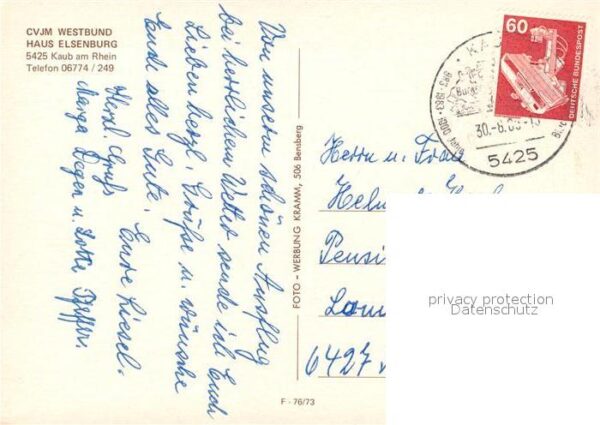 CVJM WESTBUND
HAUS ELSENBURG
5425 Kaub am Rhein
Telefon 06774 / 249
Von unserem schönen Ausflug
bei herrlichem Wetter sende ich Euch
Lieben herzl. Grüße u. wünsche
Euch alles Gute. Eure Liesel.
Herzl. Gruß
Marga Deger u. Lotte Pfeffer.
FOTO - WERBUNG KRAMM, 506 Bensberg
F - 76/73
60
DEUTSCHE BUNDESPOST
983-1983 · 1000 Jahre
30.-6.
5425
Herrn u. Frau
Pensi
6427
privacy protection
Datenschutz